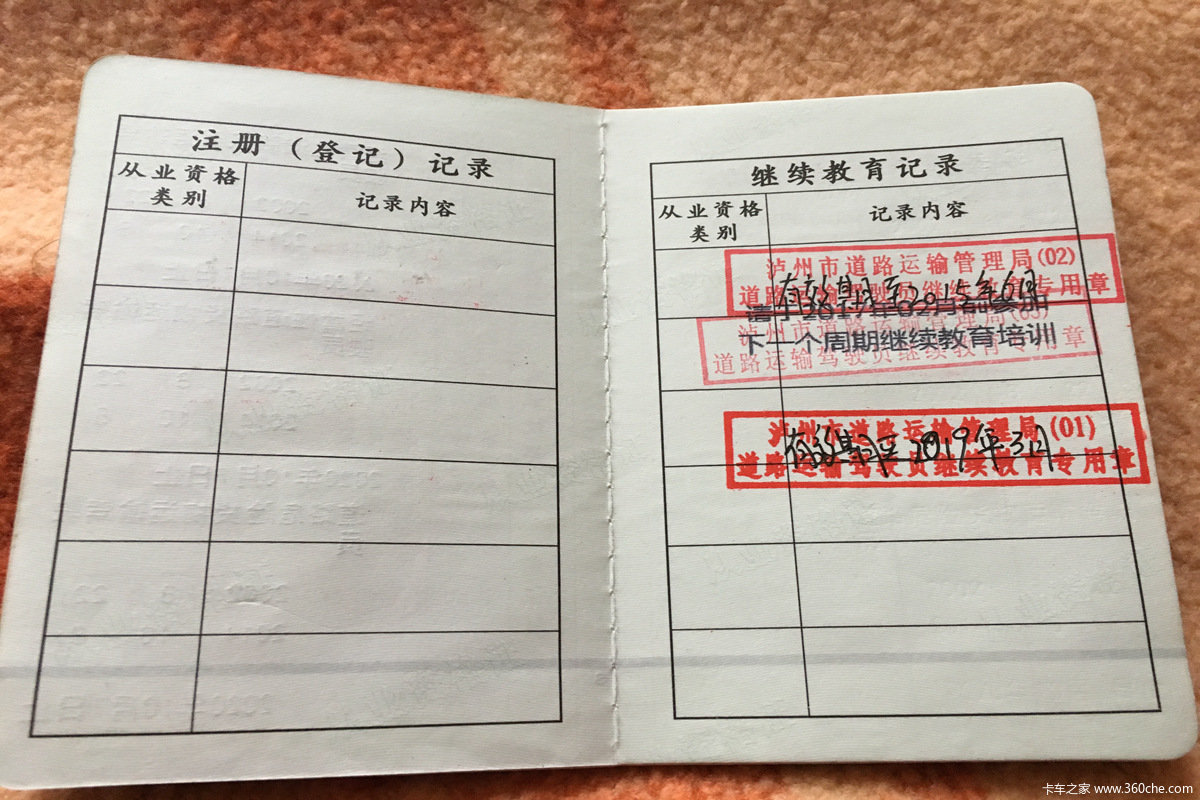 注册（登记）记录
从业资格
类别
记录内容
继续教育记录
从业资格
类别
记录内容
泸州市道路运输管理局(02)
道路运输驾驶员继续教育专用章
有效期至2015年6月
请于2017年02月前参加
下一个周期继续教育培训
泸州市道路运输管理局(03)
道路运输驾驶员继续教育专用章
泸州市道路运输管理局(01)
道路运输驾驶员继续教育专用章
有效期至2019年3月
卡车之家 www.360che.com